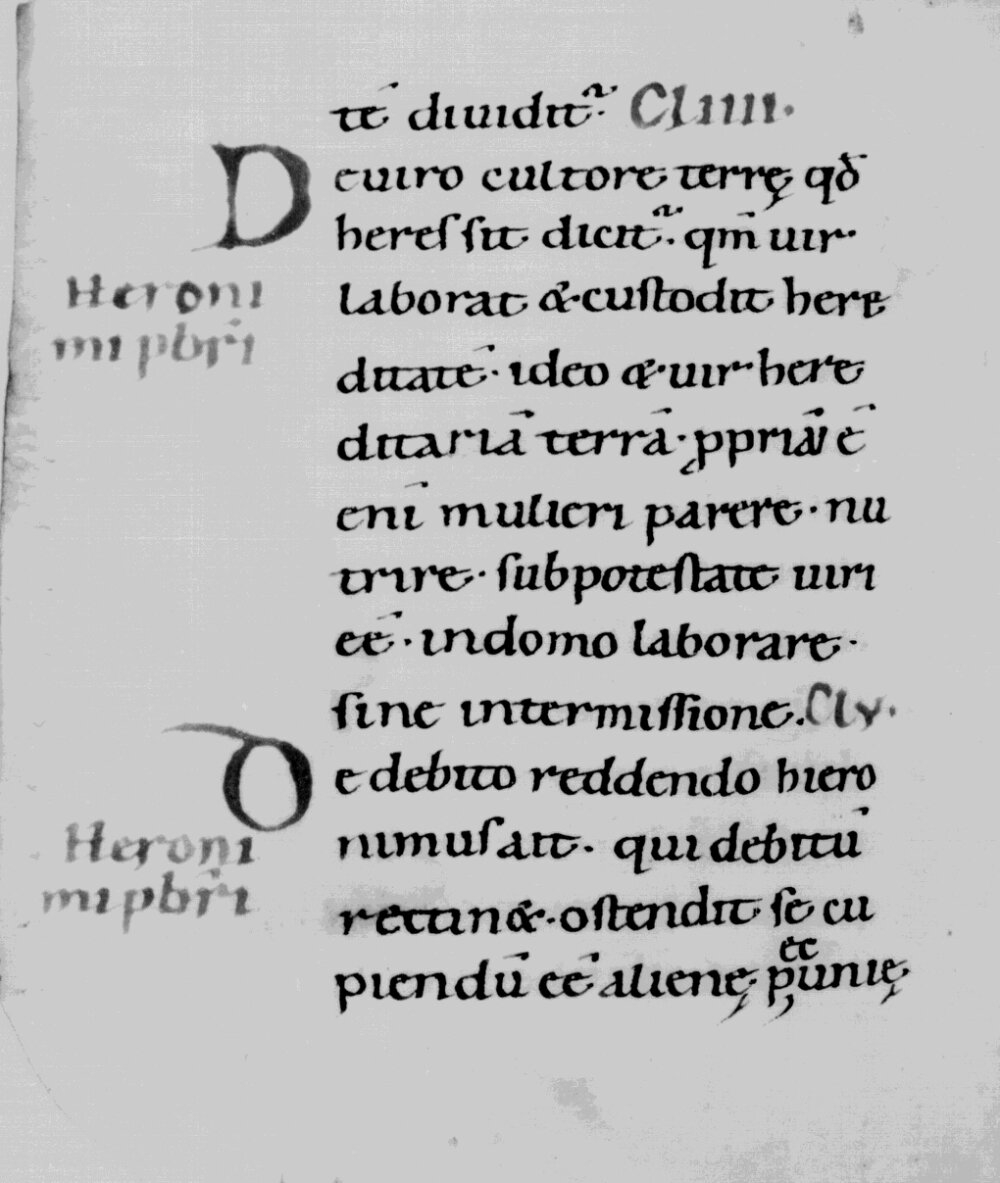 tē diuidit᷑· CLIIII·
De uiro cultore terrę qđ
heres sit dicit᷑· qm̄ uir·
laborat &·custodit here
ditatē· ideo &·uir·here
ditariā terrā· ꝓpriā ē
enī mulieri parere· nu
trire· sub potestate uiri
eē· in domo laborare·
sine intermissione. CLV·
Heroni
mi pbr̄i
De debito reddendo hiero
nimus ait· qui debitū
retin&·ostendit se cu
piendū eē alienę pęcunię
Heroni
mi pbr̄i